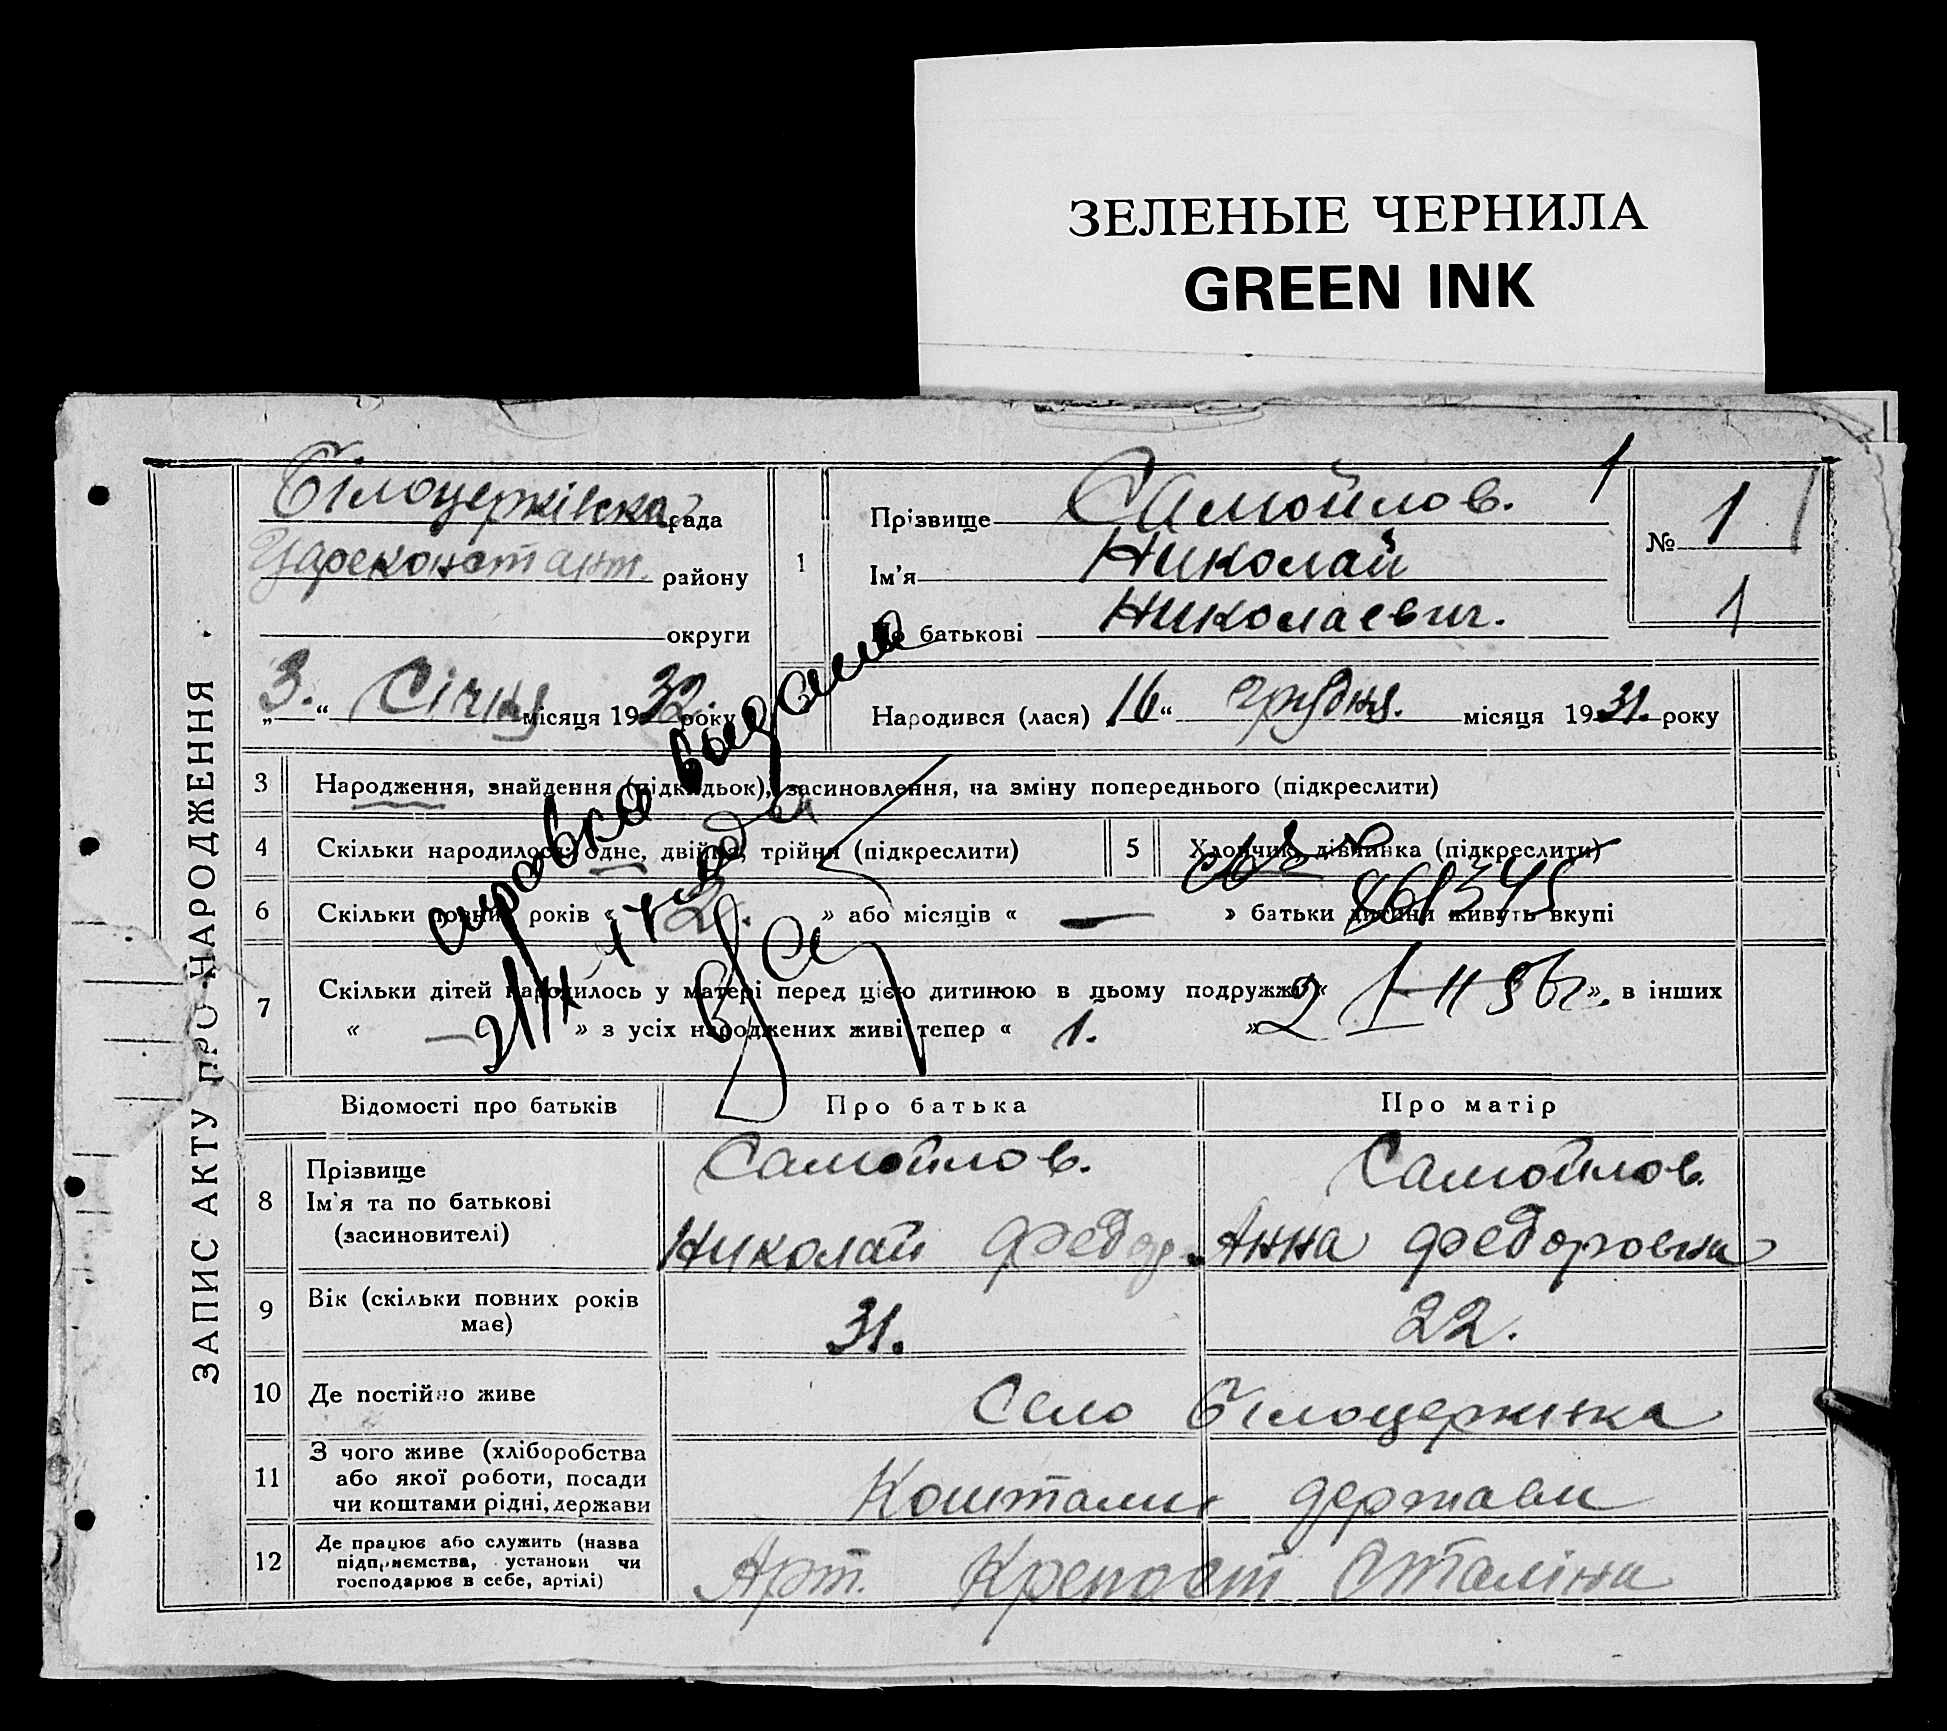 ЗЕЛЕНЫЕ ЧЕРНИЛА
GREEN INK
ЗАПИС АКТУ ПРО НАРОДЖЕННЯ
Білоцерківка рада
Цареконстант. району
округи
„3.“ Січня місяця 1932. року
1
Прізвище Самойлов.
Ім'я Николай
По батькові Николаевич.
1
№ 1
1
2
Народився (лася) 16“ грудня. місяця 1931. року
3 Народження, знайдення (підкидьок), засиновлення, на зміну попереднього (підкреслити)
4 Скільки народилося: одне, двійня, трійня (підкреслити)
5 Хлопчик, дівчинка (підкреслити)
6 Скільки повних років « 2. » або місяців « — » батьки дитини живуть вкупі
7 Скільки дітей народилось у матері перед цією дитиною в цьому подружжі « ». в інших
« — » з усіх народжених живі тепер « 1. »
справка выдана
461345
Відомості про батьків Про батька Про матір
8 Прізвище
Ім'я та по батькові
(засиновителі)
Самойлов.
Николай Федор.
Самойлов.
Анна Федоровна
9 Вік (скільки повних років
має)
31. 22.
10 Де постійно живе Село Білоцерківка
11 З чого живе (хліборобства
або якої роботи, посади
чи коштами рідні, держави
Коштами держави
12 Де працює або служить (назва
підприємства, установи чи
господарює в себе, артілі)
Арт. Крепост Сталіна